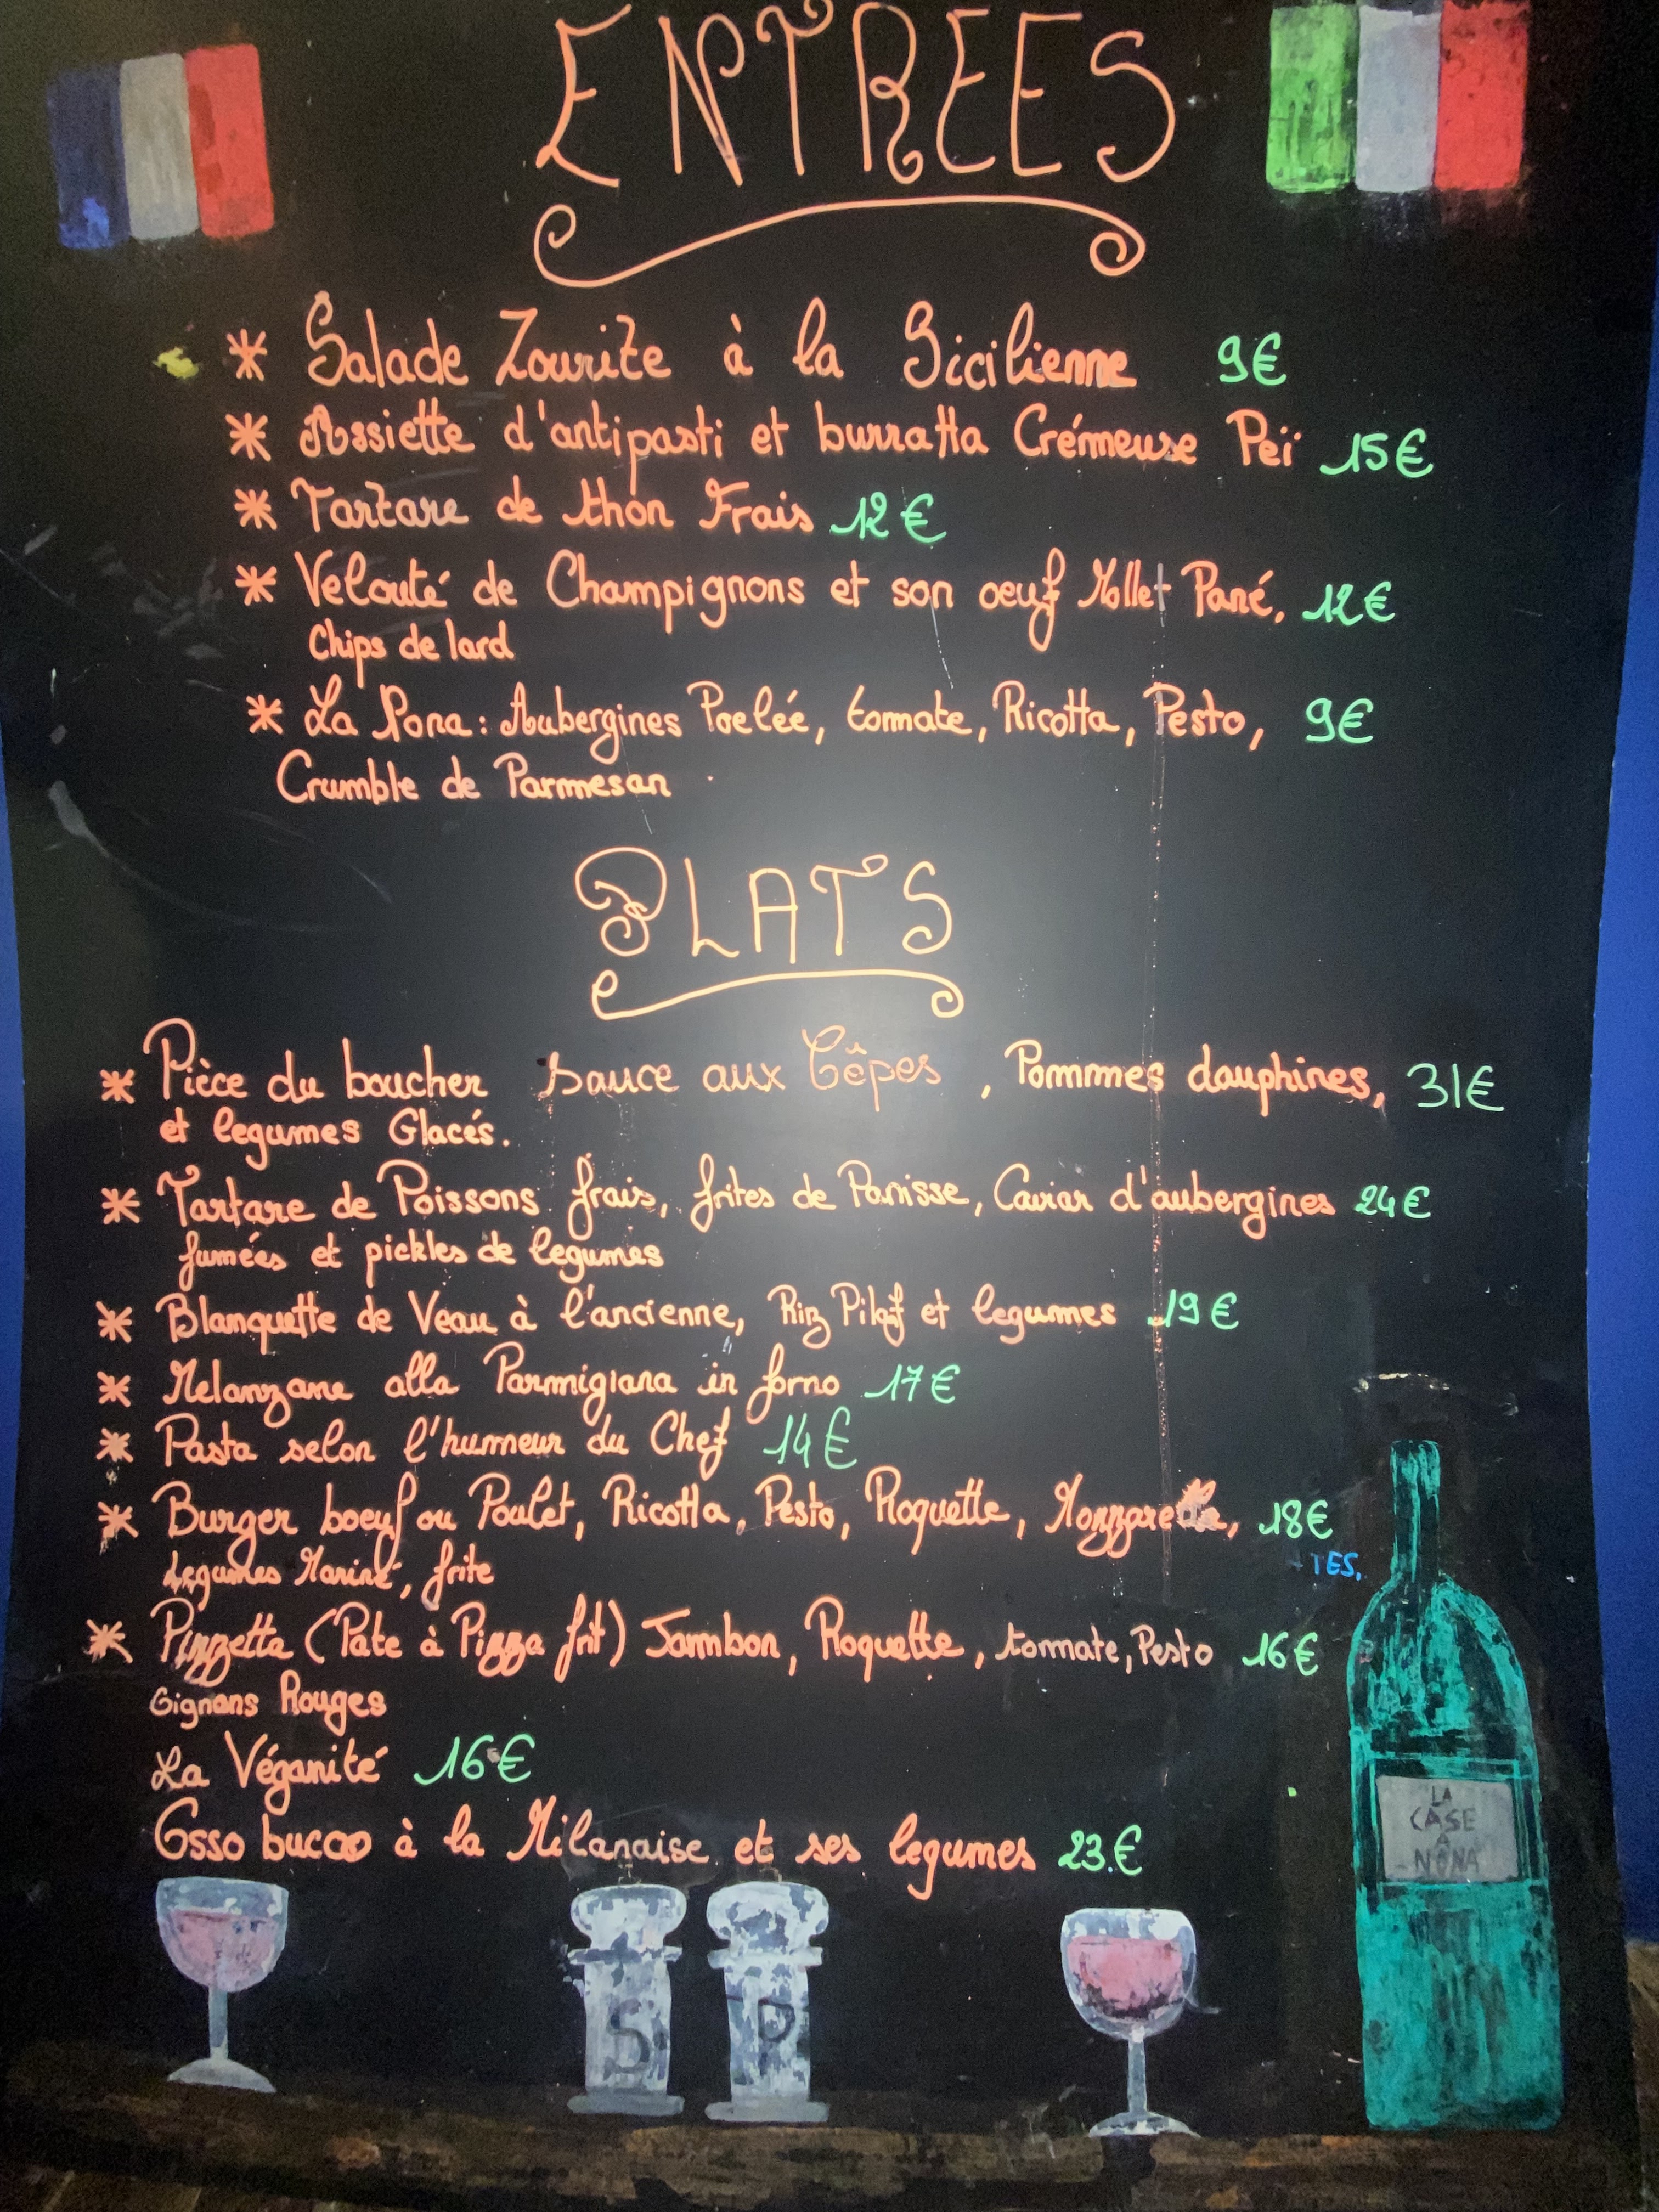 ENTREES
* Salade Zourite à la Sicilienne 9€
* Assiette d'antipasti et burratta Crémeuse Peï 15€
* Tartare de thon Frais 12€
* Velouté de Champignons et son oeuf Mollet Pané, 12€
Chips de lard
* La Nona : Aubergines Poelée, tomate, Ricotta, Pesto, 9€
Crumble de Parmesan
PLATS
* Pièce du boucher sauce aux Cêpes, Pommes dauphines, 31€
et legumes Glacés.
* Tartare de Poissons frais, frites de Panisse, Caviar d'aubergines 24€
fumées et pickles de legumes
* Blanquette de Veau à l'ancienne, Riz Pilaf et legumes 19€
* Melanzane alla Parmigiana in forno 17€
* Pasta selon l'humeur du Chef 14€
* Burger boeuf ou Poulet, Ricotta, Pesto, Roquette, Mozzarella, 18€
TES.
Legumes Mariné, frite
* Pizzetta (Pate à Pizza frit) Jambon, Roquette, tomate, Pesto 16€
Oignons Rouges
La Véganité 16€
Osso bucco à la Milanaise et ses legumes 23.€
LA
CASE
A
NONA
S P